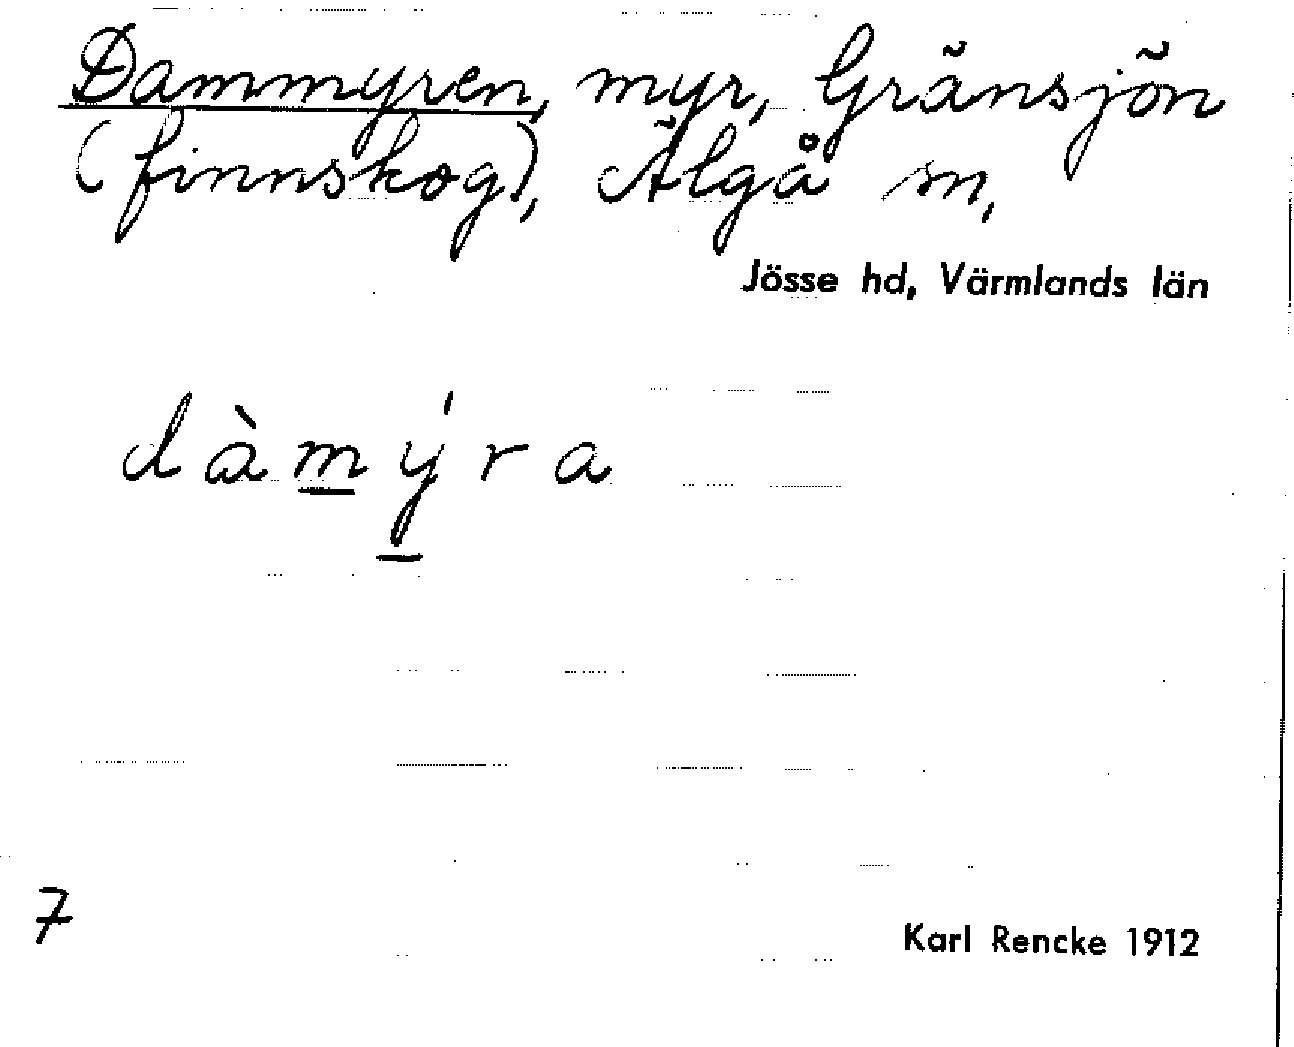 Dammyren, myr, Gränsjön
(finnskog), Älgå sn,
Jösse hd, Värmlands län
dàmýra
7
Karl Rencke 1912